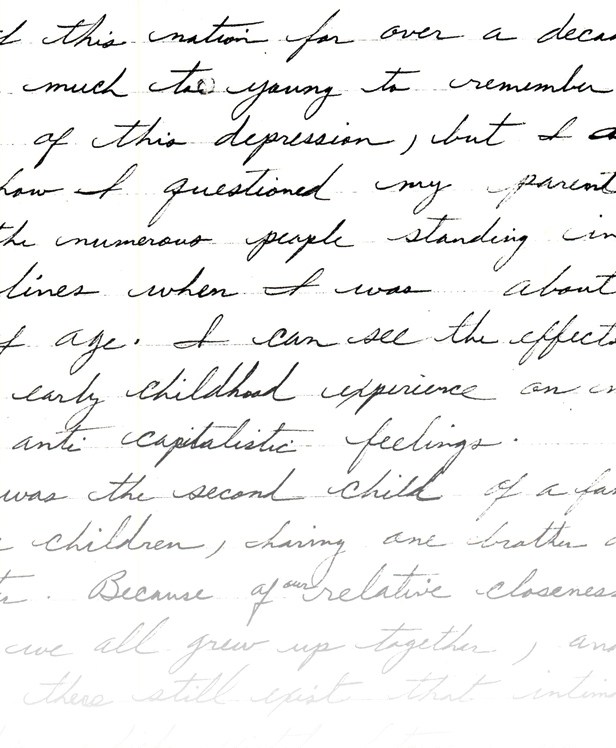 this nation for over a deca
much too young to remember
of this depression, but I a
how I questioned my parent
the numerous people standing in
lines when I was about
f age. I can see the effects
early childhood experience on m
anti capitalistic feelings.
was the second child of a fam
children, having one brother a
Because of our relative closeness
we all grew up together, and
there still exist that intim